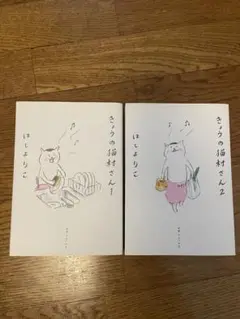 きょうの猫村さん1
ほしよりこ
きょうの猫村さん2
ほしよりこ